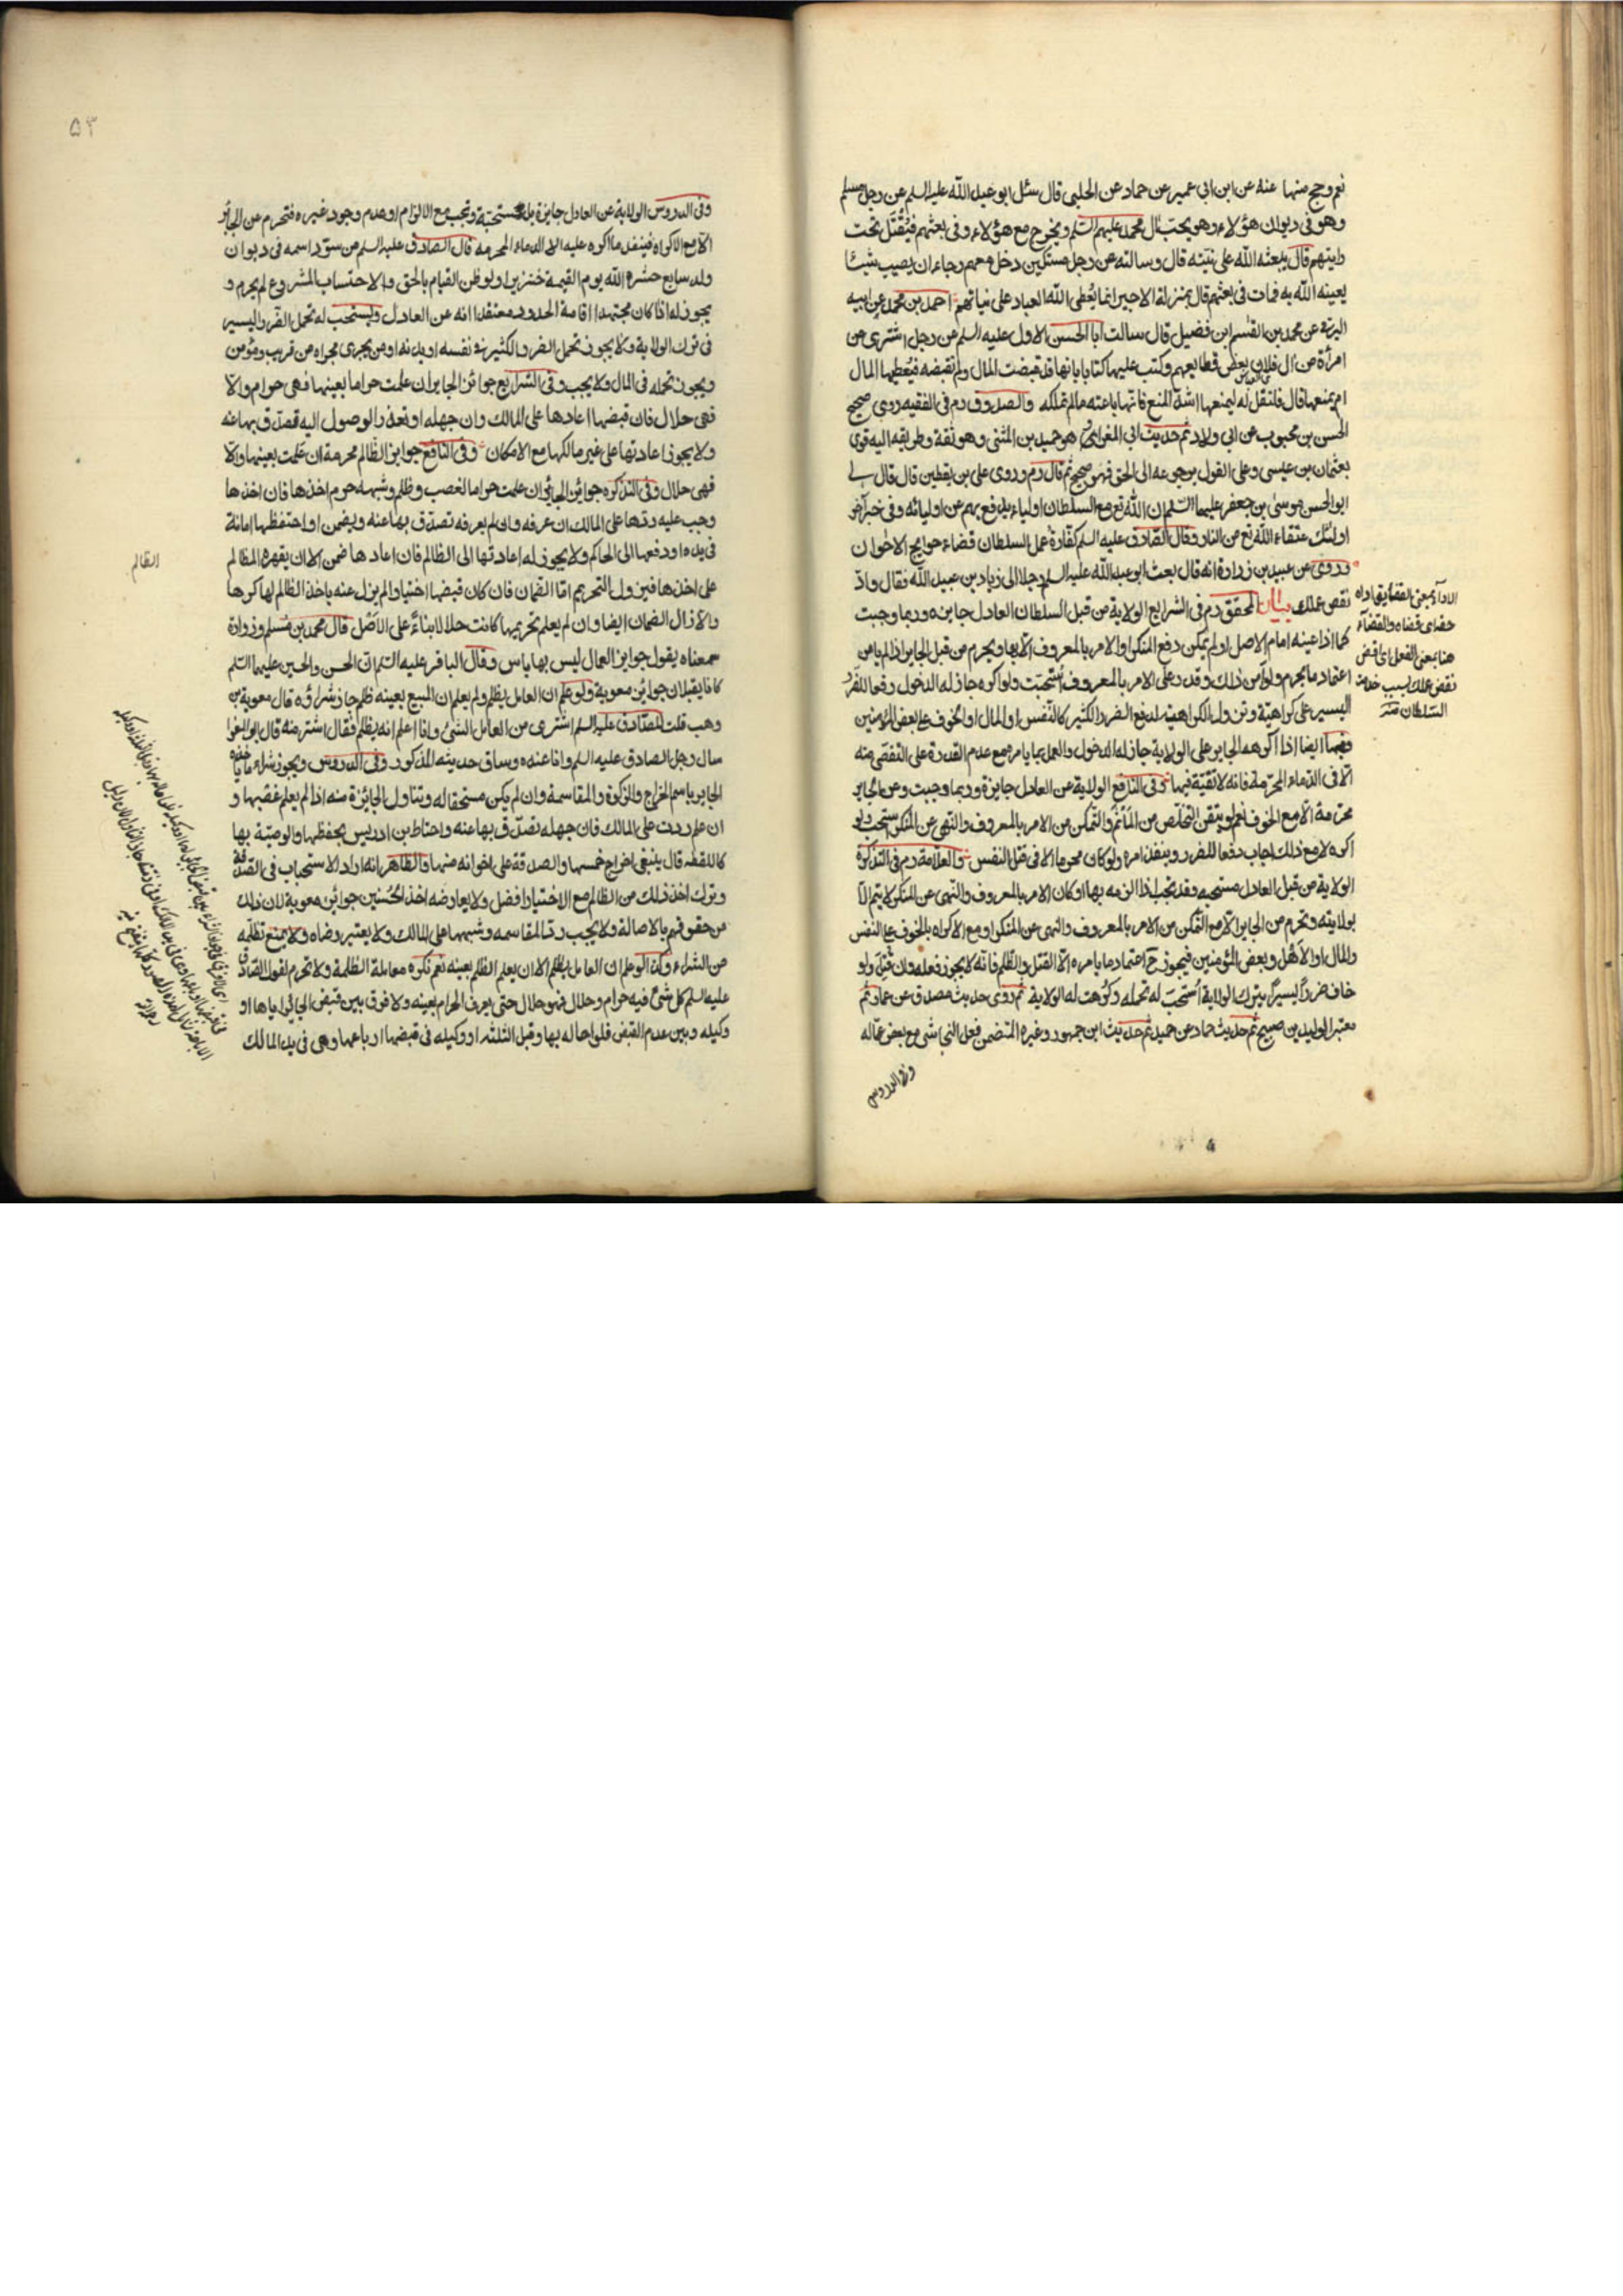 نعم وحج منها عنه عن ابن ابي عمير عن حماد عن الحلبي قال سئل ابو عبد الله عليه السلم عن رجل مسلم
وهو في ديوان هؤلاء وهو يحب آل محمد عليهم السلم ويخرج مع هؤلاء وفي بعثهم فيقتل تحت
رايتهم قال يبعثه الله على نيته قال وسالته عن رجل مسكين دخل معهم رجاء ان يصيب شيئا
يعينه الله به فمات في بعثهم قال بمنزلة الاجير انما يعطي الله العباد على نياتهم احمد بن محمد عن ابيه
البرقي عن محمد بن القسم ابن فضيل قال سالت ابا الحسن الاول عليه السلم عن رجل اشترى من
امرأة من آل فلان بعض قطايعهم وكتب عليها كتابا بانها قد قبضت المال ولم تقبضه فيعطيها المال
ام يمنعها قال فلتقل له ليمنعها اشد المنع فانها باعته مالم تملكه والصدوق رم في الفقيه روى صحيح
الحسن بن محبوب عن ابي ولاد ثم حديث ابي المغرا وهو حميد بن المثنى وهو ثقة وطريقه اليه قوي
بعثمان بن عيسى وعلى القول برجوعه الى الحق فهو صحيح ثم قال رم وروى علي بن يقطين قال قال لي
ابو الحسن موسى بن جعفر عليهما السلم ان الله تع مع السلطان اولياء يدفع بهم عن اوليائه وفي خبر آخر
اولئك عتقاء الله تع من النار وقال الصادق عليه السلم كفارة عمل السلطان قضاء حوايج الاخوان
وروى عن عبيد بن زرارة انه قال بعث ابو عبد الله عليه السلم رجلا الى زياد بن عبيد الله فقال واد
نقص عملك بيان المحقق رم في الشرايع الولاية من قبل السلطان العادل جايزه وربما وجبت
كما اذا عينه امام الاصل او لم يمكن دفع المنكر او الامر بالمعروف الا بها ويحرم من قبل الجاير اذا لم يامن
اعتماد ما يحرم ولو امن ذلك وقدر على الامر بالمعروف استحبت ولو اكره جاز له الدخول دفعا للضرر
اليسير على كراهية وتزول الكراهية لدفع الضرر الكثير كالنفس او المال او الخوف على بعض المؤمنين
وفيها ايضا اذا اكرهه الجاير على الولاية جاز له الدخول والعمل بما يامره مع عدم القدرة على التفصي منه
الا في الدماء المحرمة فانه لا تقية فيها وفي النافع الولاية عن العادل جايزة وربما وجبت وعن الجاير
محرمة الا مع الخوف نعم لو تيقن التخلص من المآثم والتمكن من الامر بالمعروف والنهي عن المنكر استحب ولو
اكره لا مع ذلك اجاب دفعا للضرر وينفذ امره ولو كان محرما الا في قتل النفس والعلامة رم في التذكرة
الولاية من قبل العادل مستحبه وقد تجب اذا الزمه بها او كان الامر بالمعروف والنهي عن المنكر لا يتم الا
بولايته وتحرم من الجاير الا مع التمكن من الامر بالمعروف والنهي عن المنكر او مع الاكراه بالخوف على النفس
والمال او الاهل وبعض المؤمنين فيجوز ح اعتماد ما يامره الا القتل والظلم فانه لا يجوز فعله وان قتل ولو
خاف ضررا يسيرا بترك الولاية استحب له تحمله وكرهت له الولاية ثم روى حديث مصدق عن عمار ثم
معتبر الوليد بن صبيح ثم حديث حماد عن حميد ثم حديث ابن جمهور وغيره المتضمن فعل النجاشي مع بعض عماله
وفي الدروس
الاداء بمعنى القضاء يق اداه
حقه اي قضاه والقضاء
هنا بمعنى الفعل اي اقض
نقص عملك بسبب خدمة
السلطان منه
۵۳
وفي الدروس الولاية عن العادل جايزة بل مستحبة وتجب مع الالزام او عدم وجود غيره فتحرم عن الجائر
الا مع الاكراه فينفذ ما اكره عليه الا الدماء المحرمه قال الصادق عليه السلم من سود اسمه في ديوان
ولد سابع حشره الله يوم القيمة خنزيرا ولو ظن القيام بالحق والاحتساب المشروع لم يحرم و
يجوز له اذا كان مجتهدا اقامة الحدود معتقدا انه عن العادل ويستحب له تحمل الضرر اليسير
في ترك الولاية ولا يجوز تحمل الضرر الكثير في نفسه او بدنه او من يجري مجراه من قريب ومؤمن
ويجوز تحمله في المال ولا يجب وفي الشرايع جوائز الجاير ان علمت حراما بعينها فهي حرام والا
فهي حلال فان قبضها اعادها على المالك وان جهله او تعذر الوصول اليه تصدق بها عنه
ولا يجوز اعادتها على غير مالكها مع الامكان وفي النافع جوايز الظالم محرمة ان علمت بعينها والا
فهي حلال وفي التذكره جوائز الجائر ان علمت حراما لغصب وظلم وشبهه حرم اخذها فان اخذها
وجب عليه ردها على المالك ان عرفه وان لم يعرفه تصدق بها عنه ويضمن او احتفظها امانة
في يده او دفعها الى الحاكم ولا يجوز له اعادتها الى الظالم فان اعادها ضمن الا ان يقهره الظالم
على اخذها فيزول التحريم اما الضمان فان كان قبضها اختيارا لم يزل عنه باخذ الظالم لها كرها
والا زال الضمان ايضا وان لم يعلم تحريمها كانت حلالا بناء على الاصل قال محمد بن مسلم وزرارة
سمعناه يقول جوايز العمال ليس بها باس وقال الباقر عليه السلم ان الحسن والحسين عليهما السلم
كانا يقبلان جوائز معوية ولو علم ان العامل يظلم ولم يعلم ان المبيع بعينه ظلم جاز شراؤه قال معوية بن
وهب قلت للصادق عليه السلم اشترى من العامل الشئ وانا اعلم انه يظلم فقال اشتر منه قال ابو المغرا
سال رجل الصادق عليه السلم وانا عنده وساق حديثه المذكور وفي الدروس ويجوز شراء ما ياخذه
الجاير باسم الخراج والزكوة والمقاسمة وان لم يكن مستحقا له وتناول الجائزة منه اذا لم يعلم غصبها و
ان علم ردت على المالك فان جهله تصدق بها عنه واحتاط ابن ادريس بحفظها والوصية بها
كاللقطه قال ينبغي اخراج خمسها والصدقة على اخوانه منها والظاهر انه اراد الاستحباب في الصدقة
وترك اخذ ذلك من الظالم مع الاختيار افضل ولا يعارضه اخذ الحسنين جوائز معوية لان ذلك
من حقوقهم بالاصالة ولا يجب رد المقاسمه وشبهها على المالك ولا يعتبر رضاه ولا يمنع تظلمه
من الشراء وكذا لو علم ان العامل يظلم الا ان يعلم الظلم بعينه نعم تكره معاملة الظلمة ولا تحرم لقول الصادق
عليه السلم كل شئ فيه حرام وحلال فهو حلال حتى يعرف الحرام بعينه ولا فرق بين قبض الجائر اياها او
وكيله وبين عدم القبض فلو احاله بها وقبل الثلثه او وكيله في قبضها او باعها وهي في يد المالك
الظالم